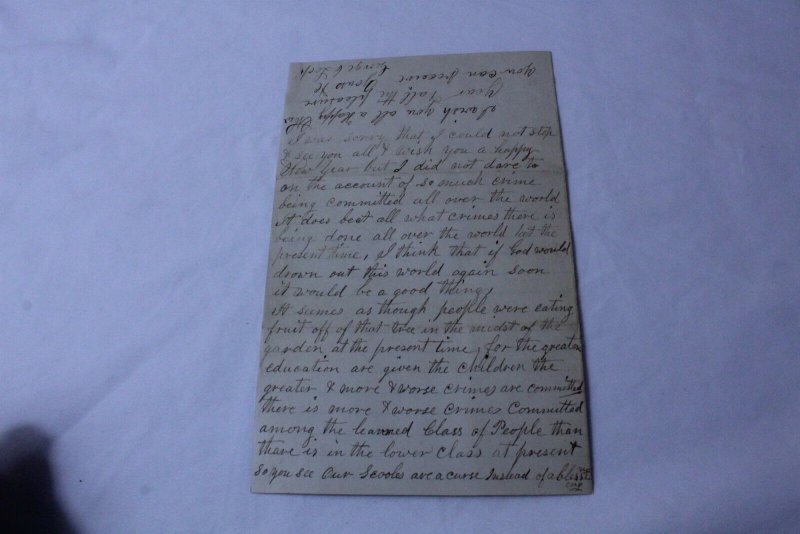 I was sorry that I could not stop
& see you all & wish you a happy
New Year but I did not dare to
on the account of so much crime
being committed all over the world
it does beat all what crimes there is
being done all over the world at the
present time, I think that if God would
drown out this world again soon
it would be a good thing,
it seemes as though people were eating
fruit off of that tree in the midst of the
garden at the present time, for the greater
education are given the children the
greater & more & worse crimes are committed
there is more & worse crimes committed
among the learned Class of People than
thare is in the lower class at present
so you see Our Scooles are a curse instead of a
I wish you all a happy
Year & all the pleasure
you can receive
Yours
George